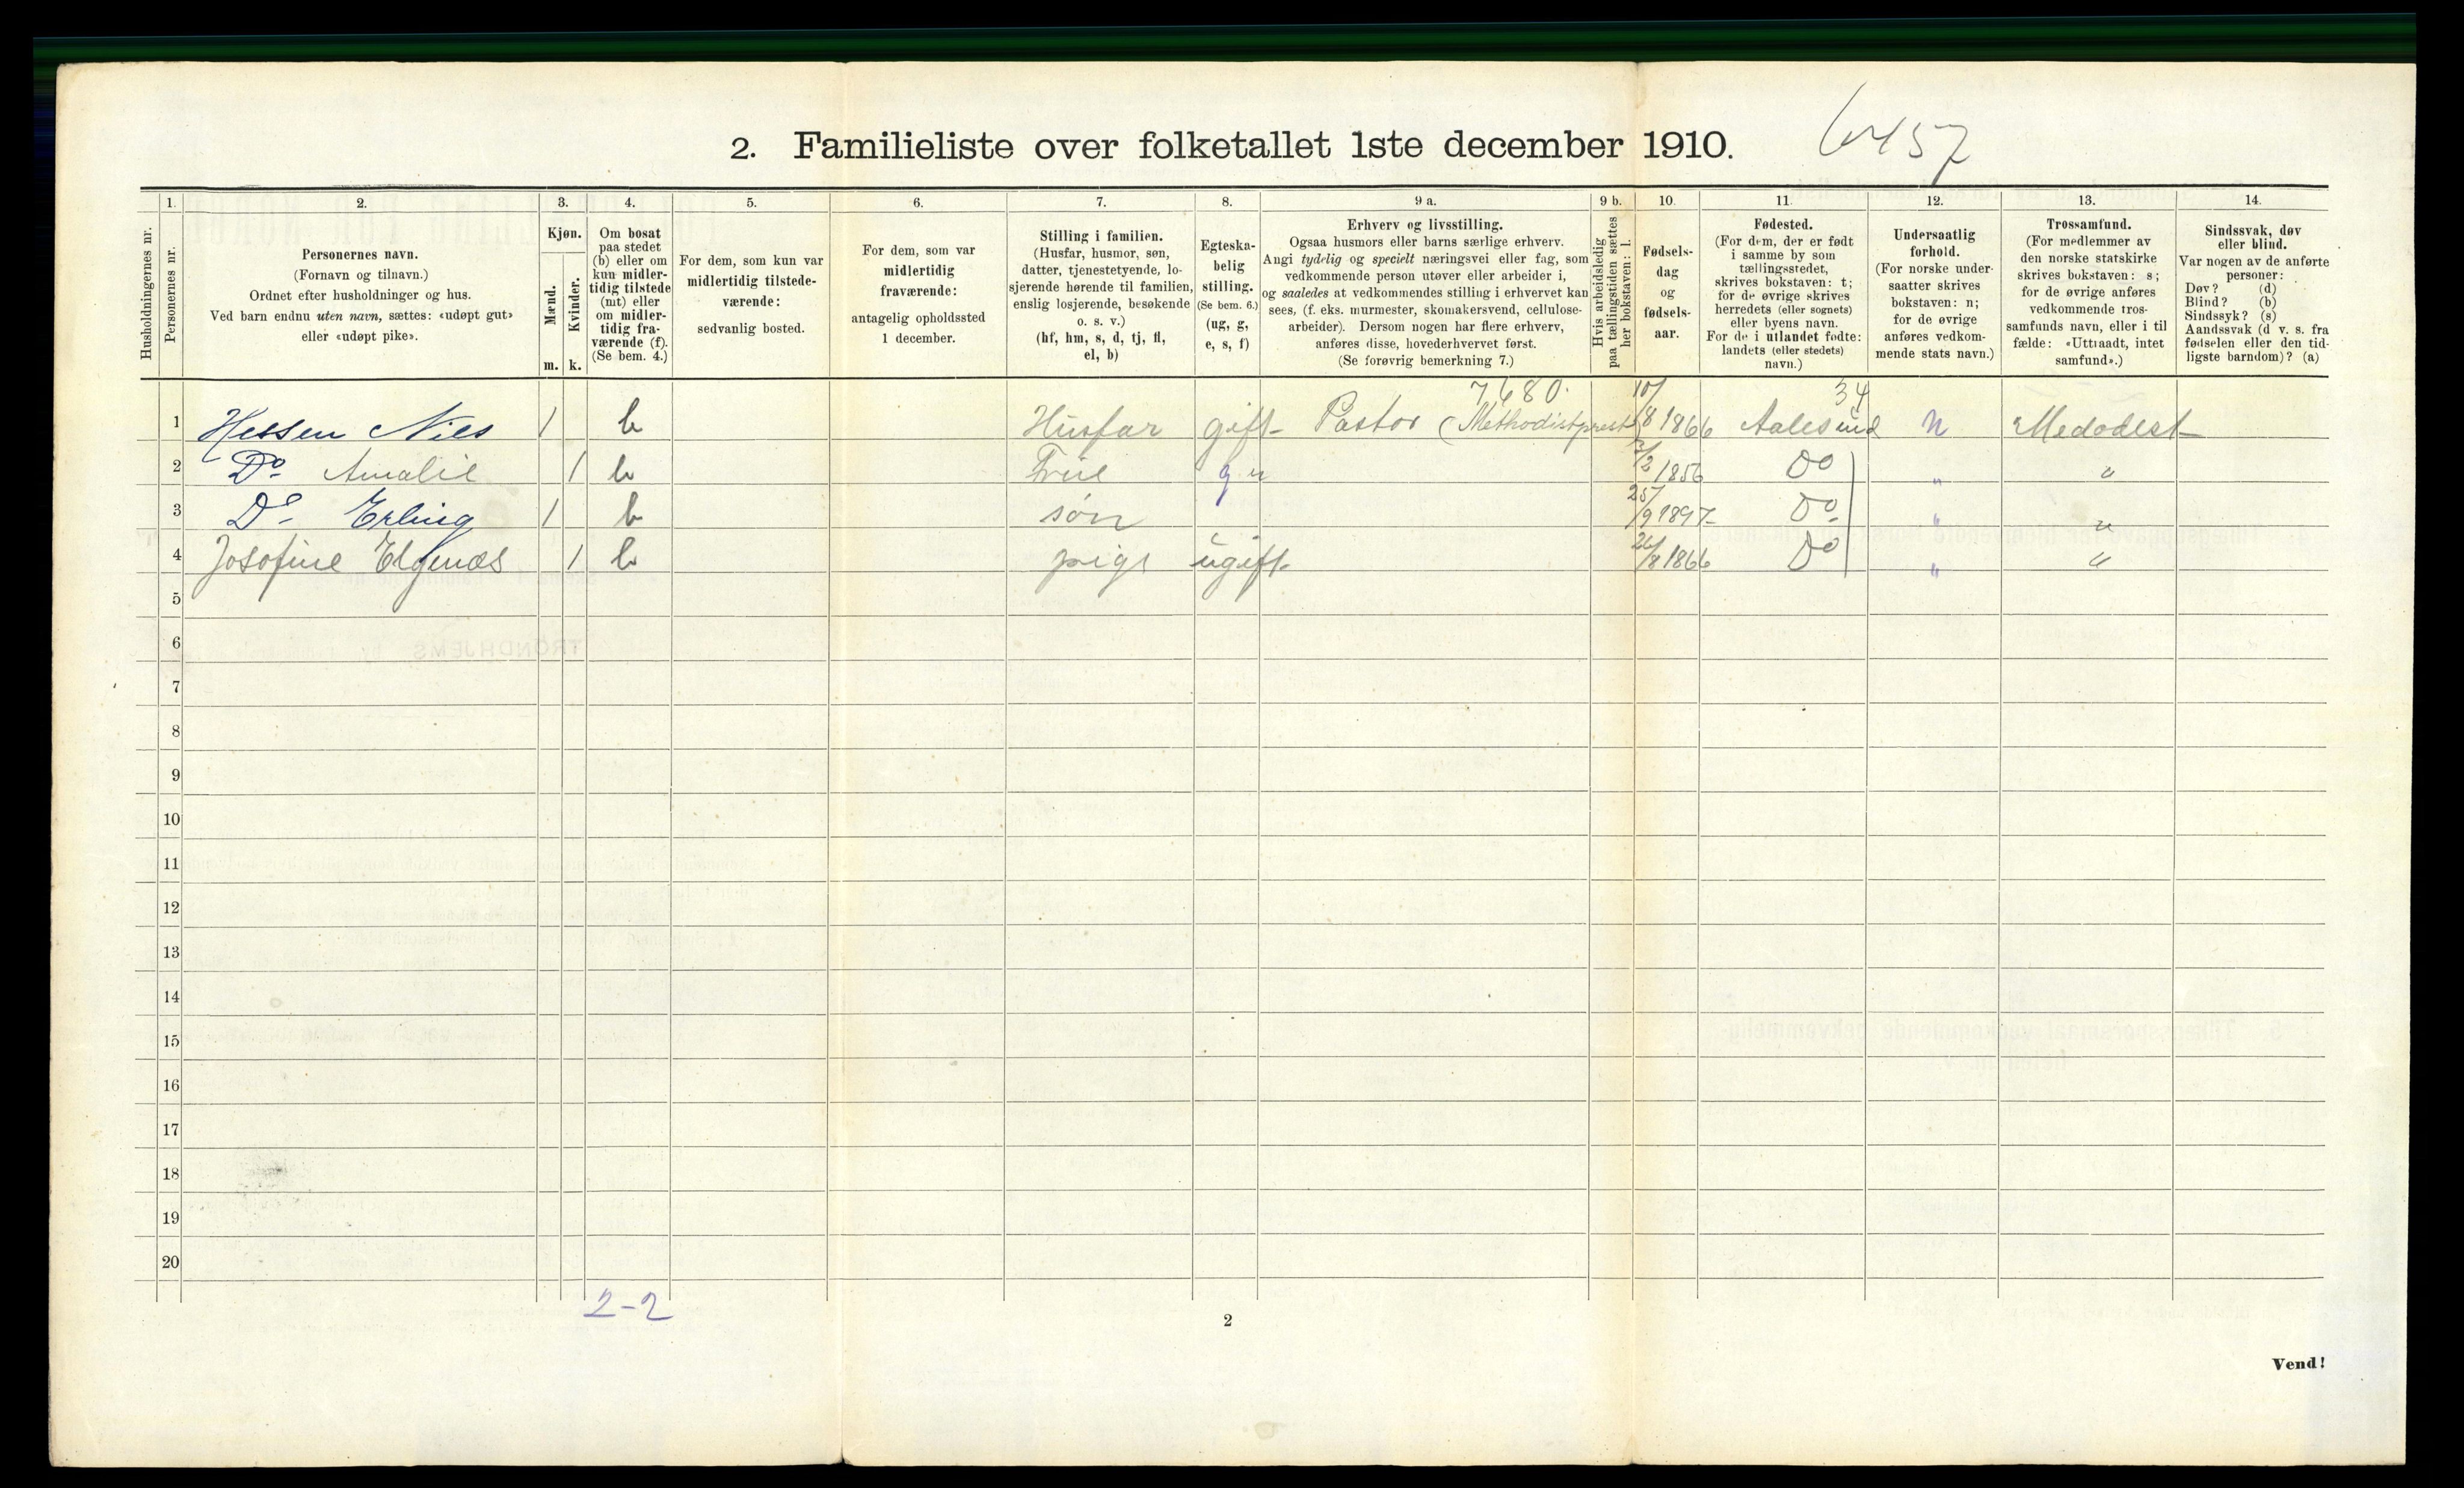 2. Familieliste over folketallet 1ste december 1910. 6457
1. 2. 3. 4. 5. 6. 7. 8. 9 a. 9 b. 10. 11. 12. 13. 14.
Husholdningernes nr.
Personernes nr.
Personernes navn.
(Fornavn og tilnavn.)
Ordnet efter husholdninger og hus.
Ved barn endnu uten navn, sættes: «udøpt gut»
eller «udøpt pike».
Kjøn.
Mænd.
Kvinder.
m. k.
Om bosat
paa stedet
(b) eller om
kun midler-
tidig tilstede
(mt) eller
om midler-
tidig fra-
værende (f).
(Se bem. 4.)
For dem, som kun var
midlertidig tilstede-
værende:
sedvanlig bosted.
For dem, som var
midlertidig
fraværende:
antagelig opholdssted
1 december.
Stilling i familien.
(Husfar, husmor, søn,
datter, tjenestetyende, lo-
sjerende hørende til familien,
enslig losjerende, besøkende
o. s. v.)
(hf, hm, s, d, tj, fl,
el, b)
Egteska-
belig
stilling.
(Se bem. 6.)
(ug, g,
e, s, f)
Erhverv og livsstilling.
Ogsaa husmors eller barns særlige erhverv.
Angi tydelig og specielt næringsvei eller fag, som
vedkommende person utøver eller arbeider i,
og saaledes at vedkommendes stilling i erhvervet kan
sees, (f. eks. murmester, skomakersvend, cellulose-
arbeider). Dersom nogen har flere erhverv,
anføres disse, hovederhvervet først.
(Se forøvrig bemerkning 7.)
Hvis arbeidsledig
paa tællingstiden sættes
her bokstaven: l.
Fødsels-
dag
og
fødsels-
aar.
Fødested.
(For dem, der er født
i samme by som
tællingsstedet,
skrives bokstaven: t;
for de øvrige skrives
herredets (eller sognets)
eller byens navn.
For de i utlandet fødte:
landets (eller stedets)
navn.)
Undersaatlig
forhold.
(For norske under-
saatter skrives
bokstaven: n;
for de øvrige
anføres vedkom-
mende stats navn.)
Trossamfund.
(For medlemmer av
den norske statskirke
skrives bokstaven: s;
for de øvrige anføres
vedkommende tros-
samfunds navn, eller i til
fælde: «Uttraadt, intet
samfund».)
Sindssvak, døv
eller blind.
Var nogen av de anførte
personer:
Døv? (d)
Blind? (b)
Sindssyk? (s)
Aandssvak (d v. s. fra
fødselen eller den tid-
ligste barndom)? (a)
7680. 34
1 Hessen Niels 1 b Husfar gift Pastor (Methodistprest) 10/8 1866 Aalesund n Medodest
2 Do Amalie 1 b Frue g " 1856 Do " "
3 Do Erling 1 b søn 25/9 1897 Do " "
4 Josofine Elgenæs 1 b pige ugift 26/8 1866 Do " "
5
6
7
8
9
10
11
12
13
14
15
16
17
18
19
20
2-2
2
Vend!